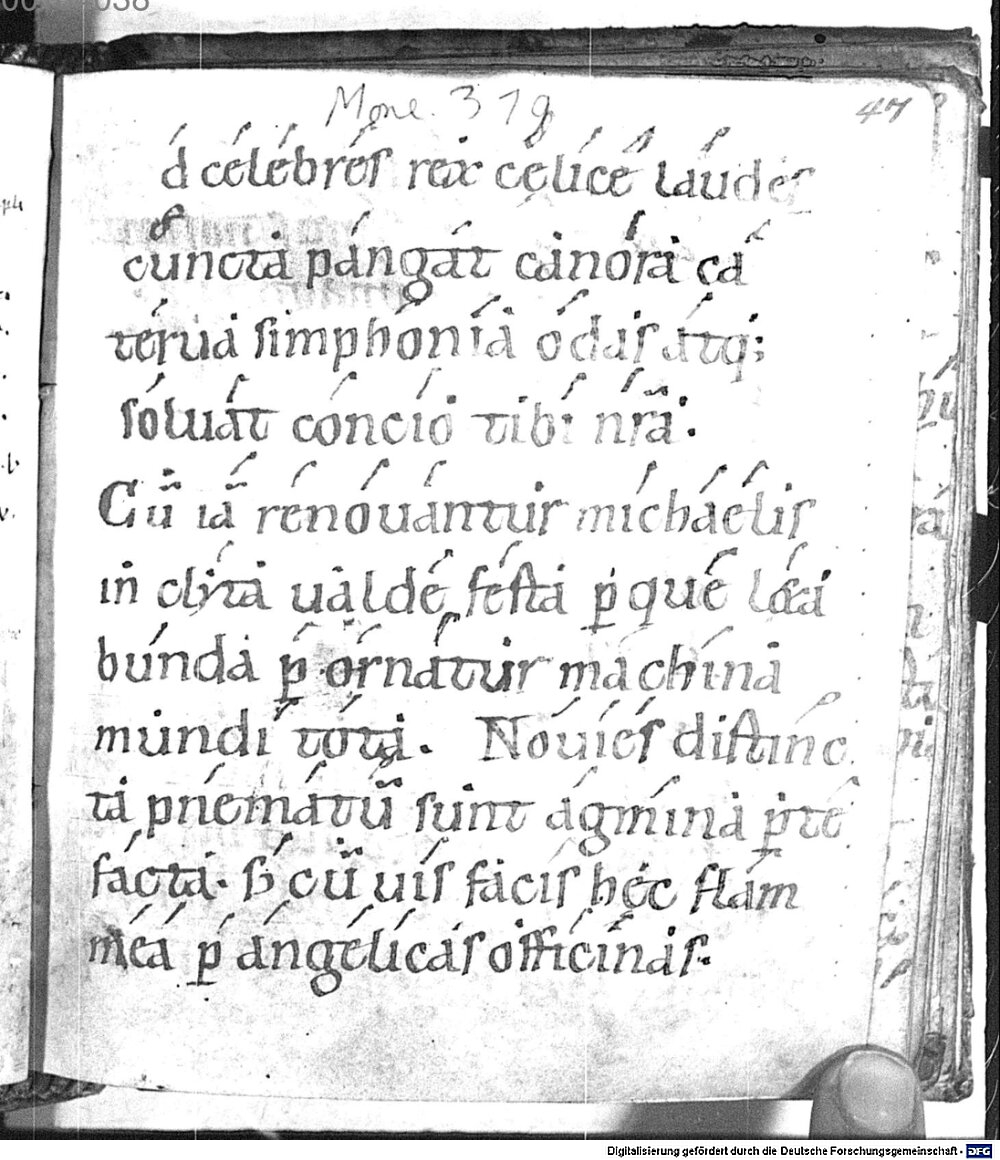 038
Mone. 319
47
d celebres rex celice laudes
cuncta pangat canora ca
terua simphonia odas atq;
soluat concio tibi nr̄a.
Cū iā renouantur michaelis
in clyta ualde festa ꝑ que lęta
bunda ꝑ ornatur machina
mundi tota. Nouies distinc
ta pnematū sunt agmina ꝑ te
facta. s; cū uis facis hęc flam
mea ꝑ angelicas officinas.
Digitalisierung gefördert durch die Deutsche Forschungsgemeinschaft - DFG